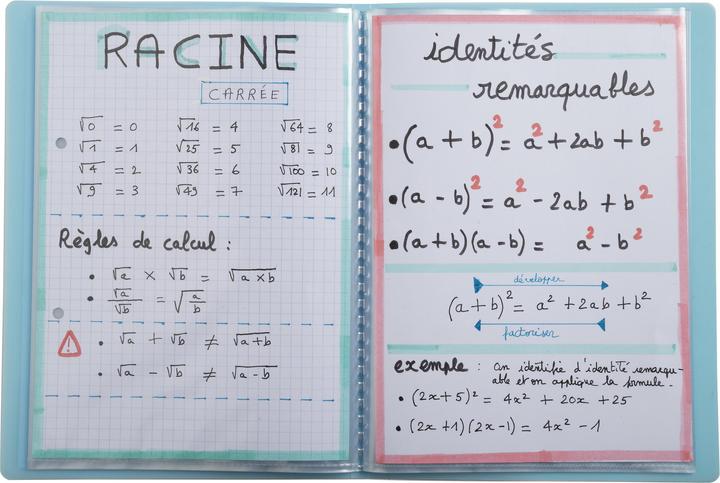 RACINE
CARRÉE
√0 = 0 √16 = 4 √64 = 8
√1 = 1 √25 = 5 √81 = 9
√4 = 2 √36 = 6 √100 = 10
√9 = 3 √49 = 7 √121 = 11
Règles de calcul :
• √a × √b = √a×b
• √a/√b = √a/b
• √a + √b ≠ √a+b
• √a - √b ≠ √a-b
identités
remarquables
• (a + b)² = a² + 2ab + b²
• (a - b)² = a² - 2ab + b²
• (a+b)(a-b) = a² - b²
développer
(a+b)² = a² + 2ab + b²
factoriser
exemple : on identifie d'identité remarqu-
able et on applique la formule.
• (2x+5)² = 4x² + 20x + 25
• (2x+1)(2x-1) = 4x² - 1